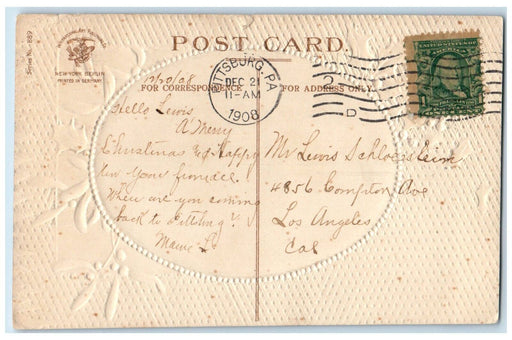 Series No. 889
INTERNATIONAL ART PUBLISHING CO.
NEW YORK BERLIN
PRINTED IN GERMANY
POST CARD.
FOR CORRESPONDENCE
FOR ADDRESS ONLY
PITTSBURG, PA
DEC 21
11-AM
1908
2
D
UNITED STATES OF AMERICA
1
12/20/08
Hello Lewis
A Merry
Christmas & Happy
New Year from all
When are you coming
back to Pittsburg?
Mame L
Mr Lewis Schloesstein
4856 Compton Ave
Los Angeles
Cal